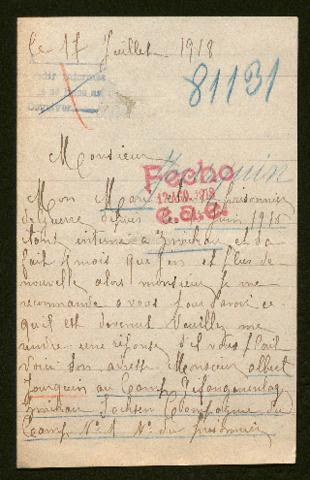 le 17 Juillet 1918
81131
Monsieur
Jourquin
Fecho
Mon Mari prisonnier
de guerre depuis le juin 1915
étant interné a Zwickau et sa
fait mois que jen et plus de
nouvelle alors monsieur je me
recommande a vous pour savoir ce
quil est devenut Veuillez me
rendre une réponse s'il vous plait
voici son adresse Monsieur albert
Jourquin au Camp Gefangenenlag
Zwickau Sachsen Compagnie du
Camp N° 1 N° du prisonnier